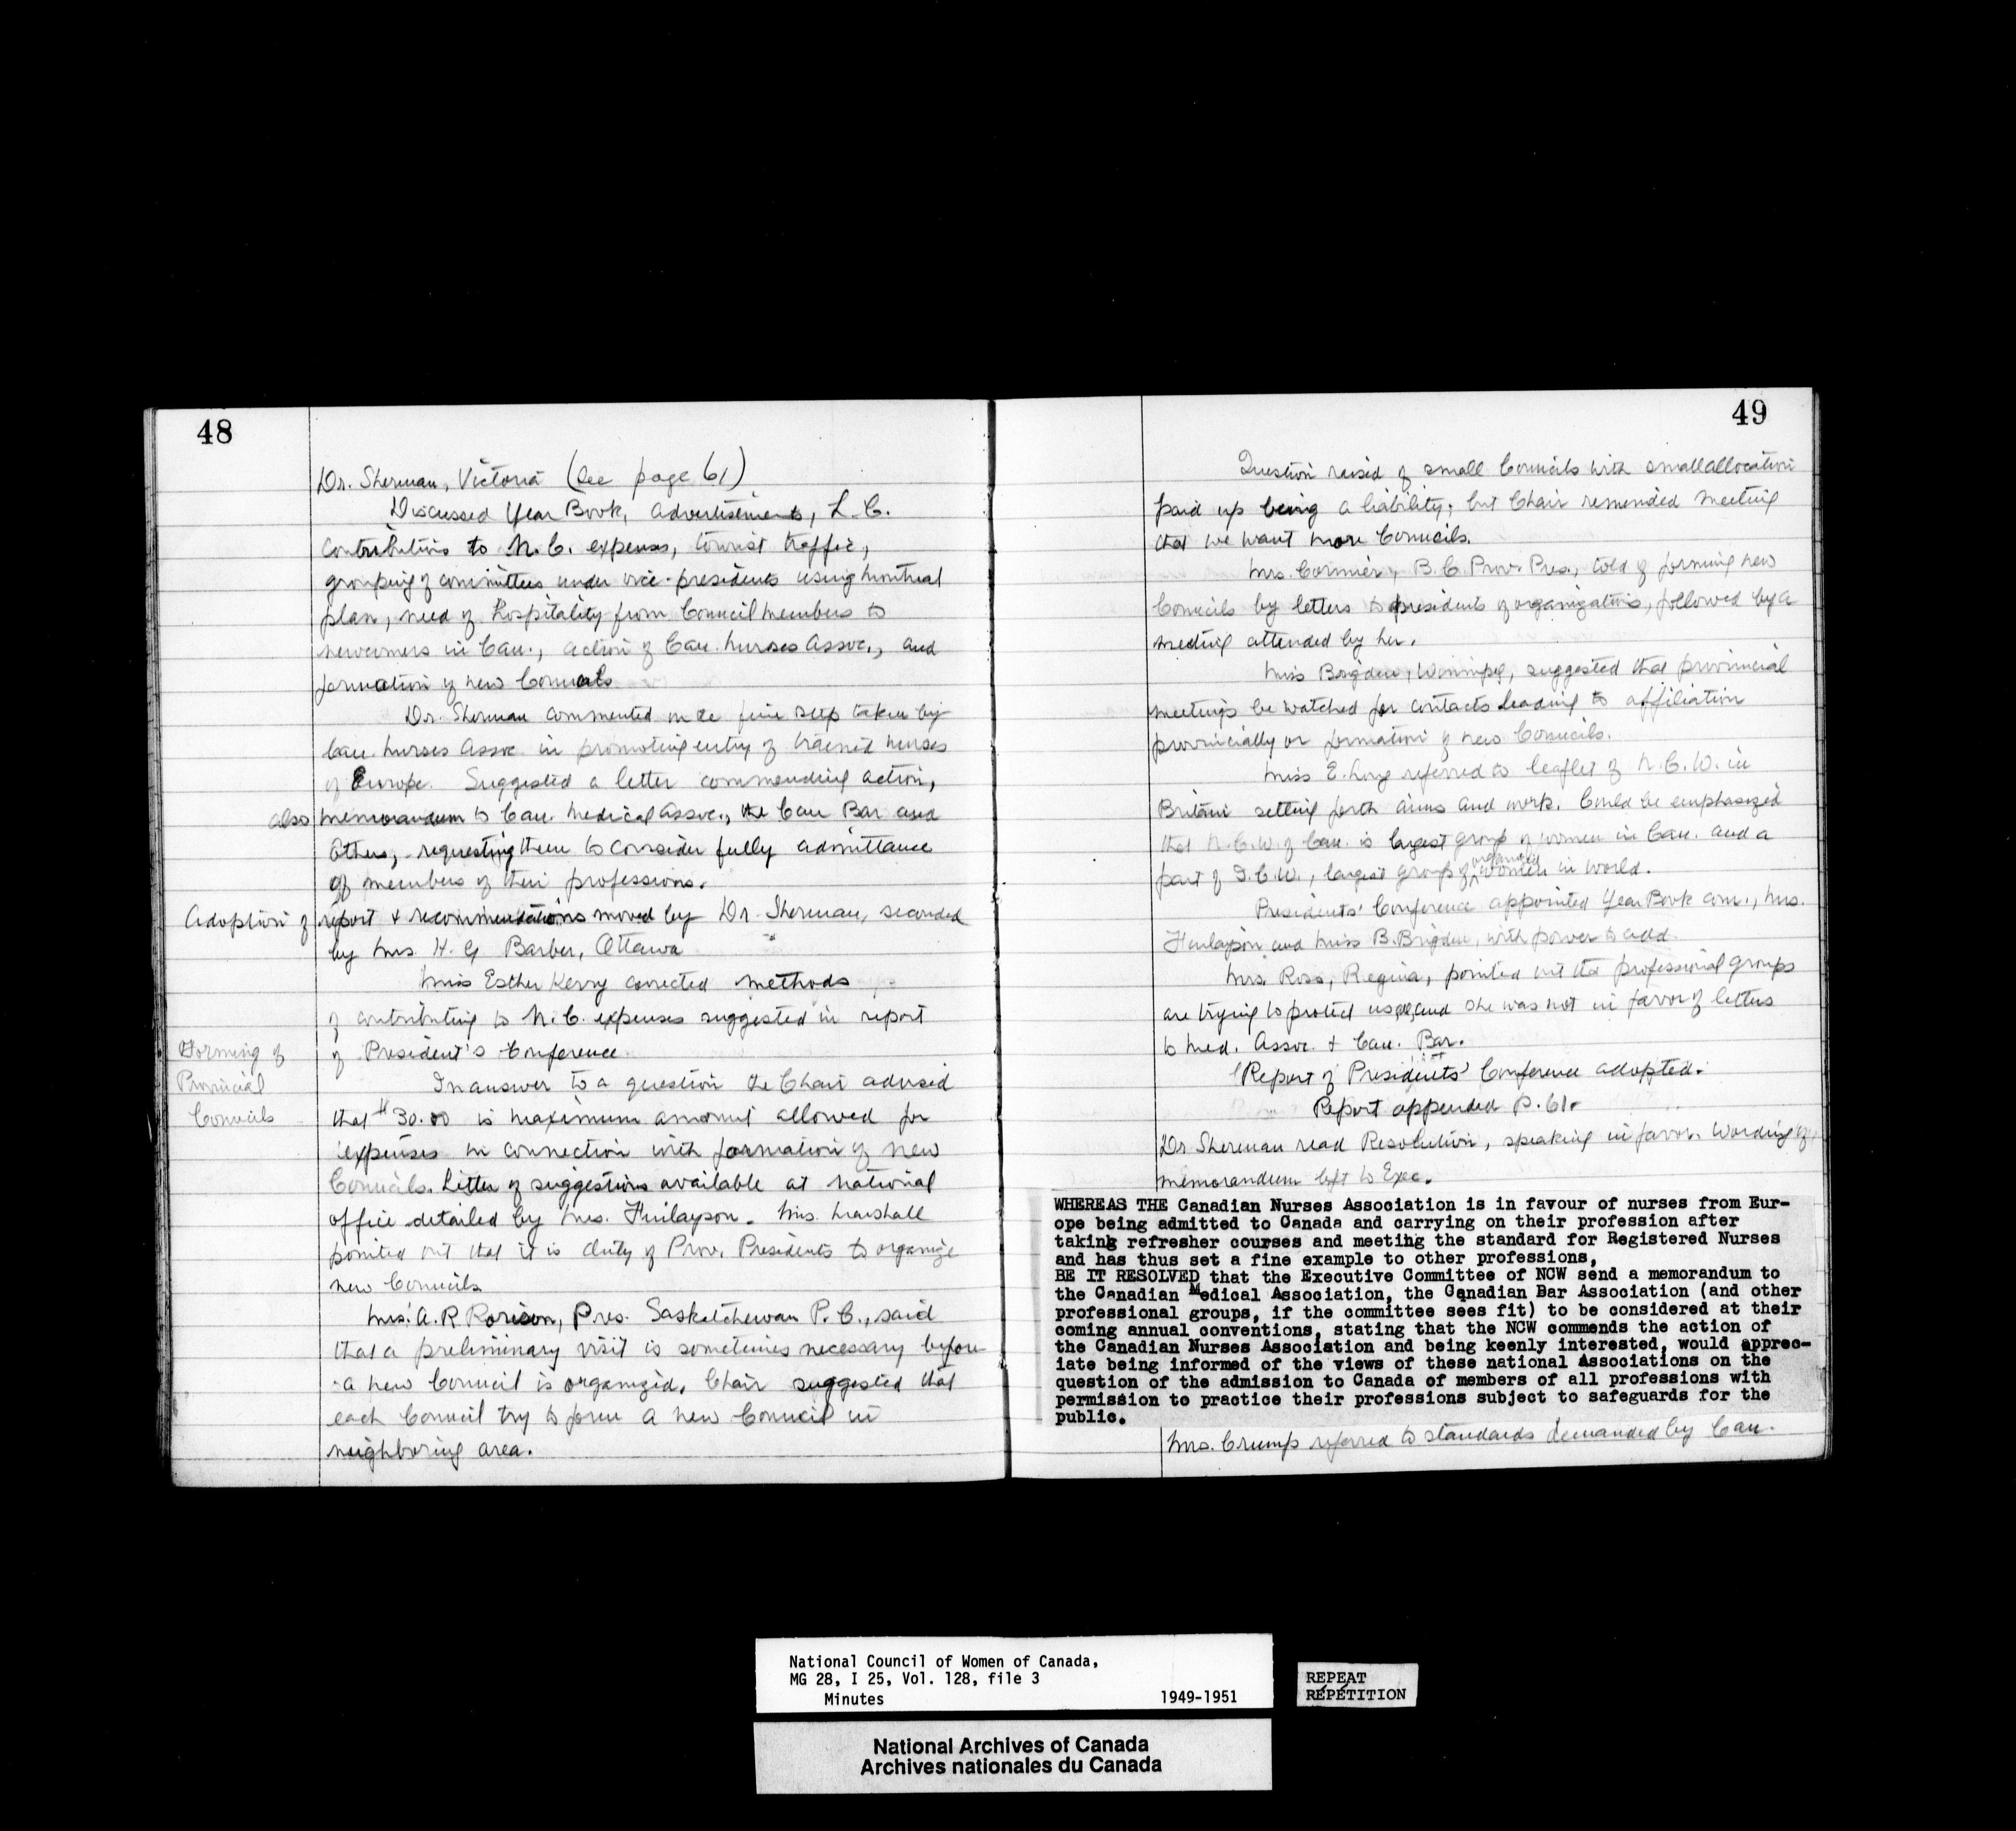 48
Dr. Sherman, Victoria (See page 61)
Discussed Year Book, advertisements, L.C.
contributions to N.C. expenses, tourist traffic,
grouping of committees under vice-presidents using Montreal
plan, need of hospitality from Council members to
newcomers in Can., action of Can. Nurses Assoc., and
formation of new Councils
Dr. Sherman commented on the fine step taken by
Can. Nurses Assoc. in promoting entry of trained nurses
of Europe. Suggested a letter commending action,
also memorandum to Can. Medical Assoc., the Can Bar and
others, requesting them to consider fully admittance
of members of their professions.
Adoption of report & recommendations moved by Dr. Sherman, seconded
by Mrs. H. G Barber, Ottawa
Miss Esther Kerry corrected methods
of contributing to N.C. expenses suggested in report
of President's Conference.
Forming of
Provincial
Councils
In answer to a question the Chair advised
that $30.00 is maximum amount allowed for
expenses in connection with formation of new
Councils. Letter of suggestions available at national
office detailed by Mrs. Finlayson. Mrs. Marshall
pointed out that it is duty of Prov. Presidents to organize
new Councils
Mrs. A. R Rorison, Pres. Saskatchewan P.C., said
that a preliminary visit is sometimes necessary before
a new Council is organized. Chair suggested that
each Council try to form a new Council in
neighboring area.
49
Question raised of small Councils with small allocation
paid up being a liability, but Chair reminded meeting
that we want more Councils.
Mrs. Cormier, B.C. Prov. Pres., told of forming new
Councils by letters to presidents of organizations, followed by a
meeting attended by her.
Miss Brigden, Winnipeg, suggested that provincial
meetings be watched for contacts leading to affiliation
provincially or formation of new Councils.
Miss E. Long referred to leaflet of N.C.W. in
Britain setting forth aims and work. Could be emphasized
that N.C.W. of Can. is largest group of women in Can. and a
part of I.C.W., largest group of organized women in world.
Presidents' Conference appointed Year Book com., Mrs.
Finlayson and Miss B. Brigden, with power to add.
Mrs. Ross, Regina, pointed out that professional groups
are trying to protect us, and she was not in favor of letters
to Med. Assoc. & Can. Bar.
Report of Presidents' Conference adopted.
Report appended P. 61.
Dr Sherman read Resolution, speaking in favor. Wording of
memorandum left to Exec.
WHEREAS THE Canadian Nurses Association is in favour of nurses from Eur-
ope being admitted to Canada and carrying on their profession after
taking refresher courses and meeting the standard for Registered Nurses
and has thus set a fine example to other professions,
BE IT RESOLVED that the Executive Committee of NCW send a memorandum to
the Canadian Medical Association, the Canadian Bar Association (and other
professional groups, if the committee sees fit) to be considered at their
coming annual conventions, stating that the NCW commends the action of
the Canadian Nurses Association and being keenly interested, would apprec-
iate being informed of the views of these national Associations on the
question of the admission to Canada of members of all professions with
permission to practice their professions subject to safeguards for the
public.
Mrs. Crump referred to standards demanded by Can.
National Council of Women of Canada,
MG 28, I 25, Vol. 128, file 3
Minutes 1949-1951
REPEAT
RÉPÉTITION
National Archives of Canada
Archives nationales du Canada